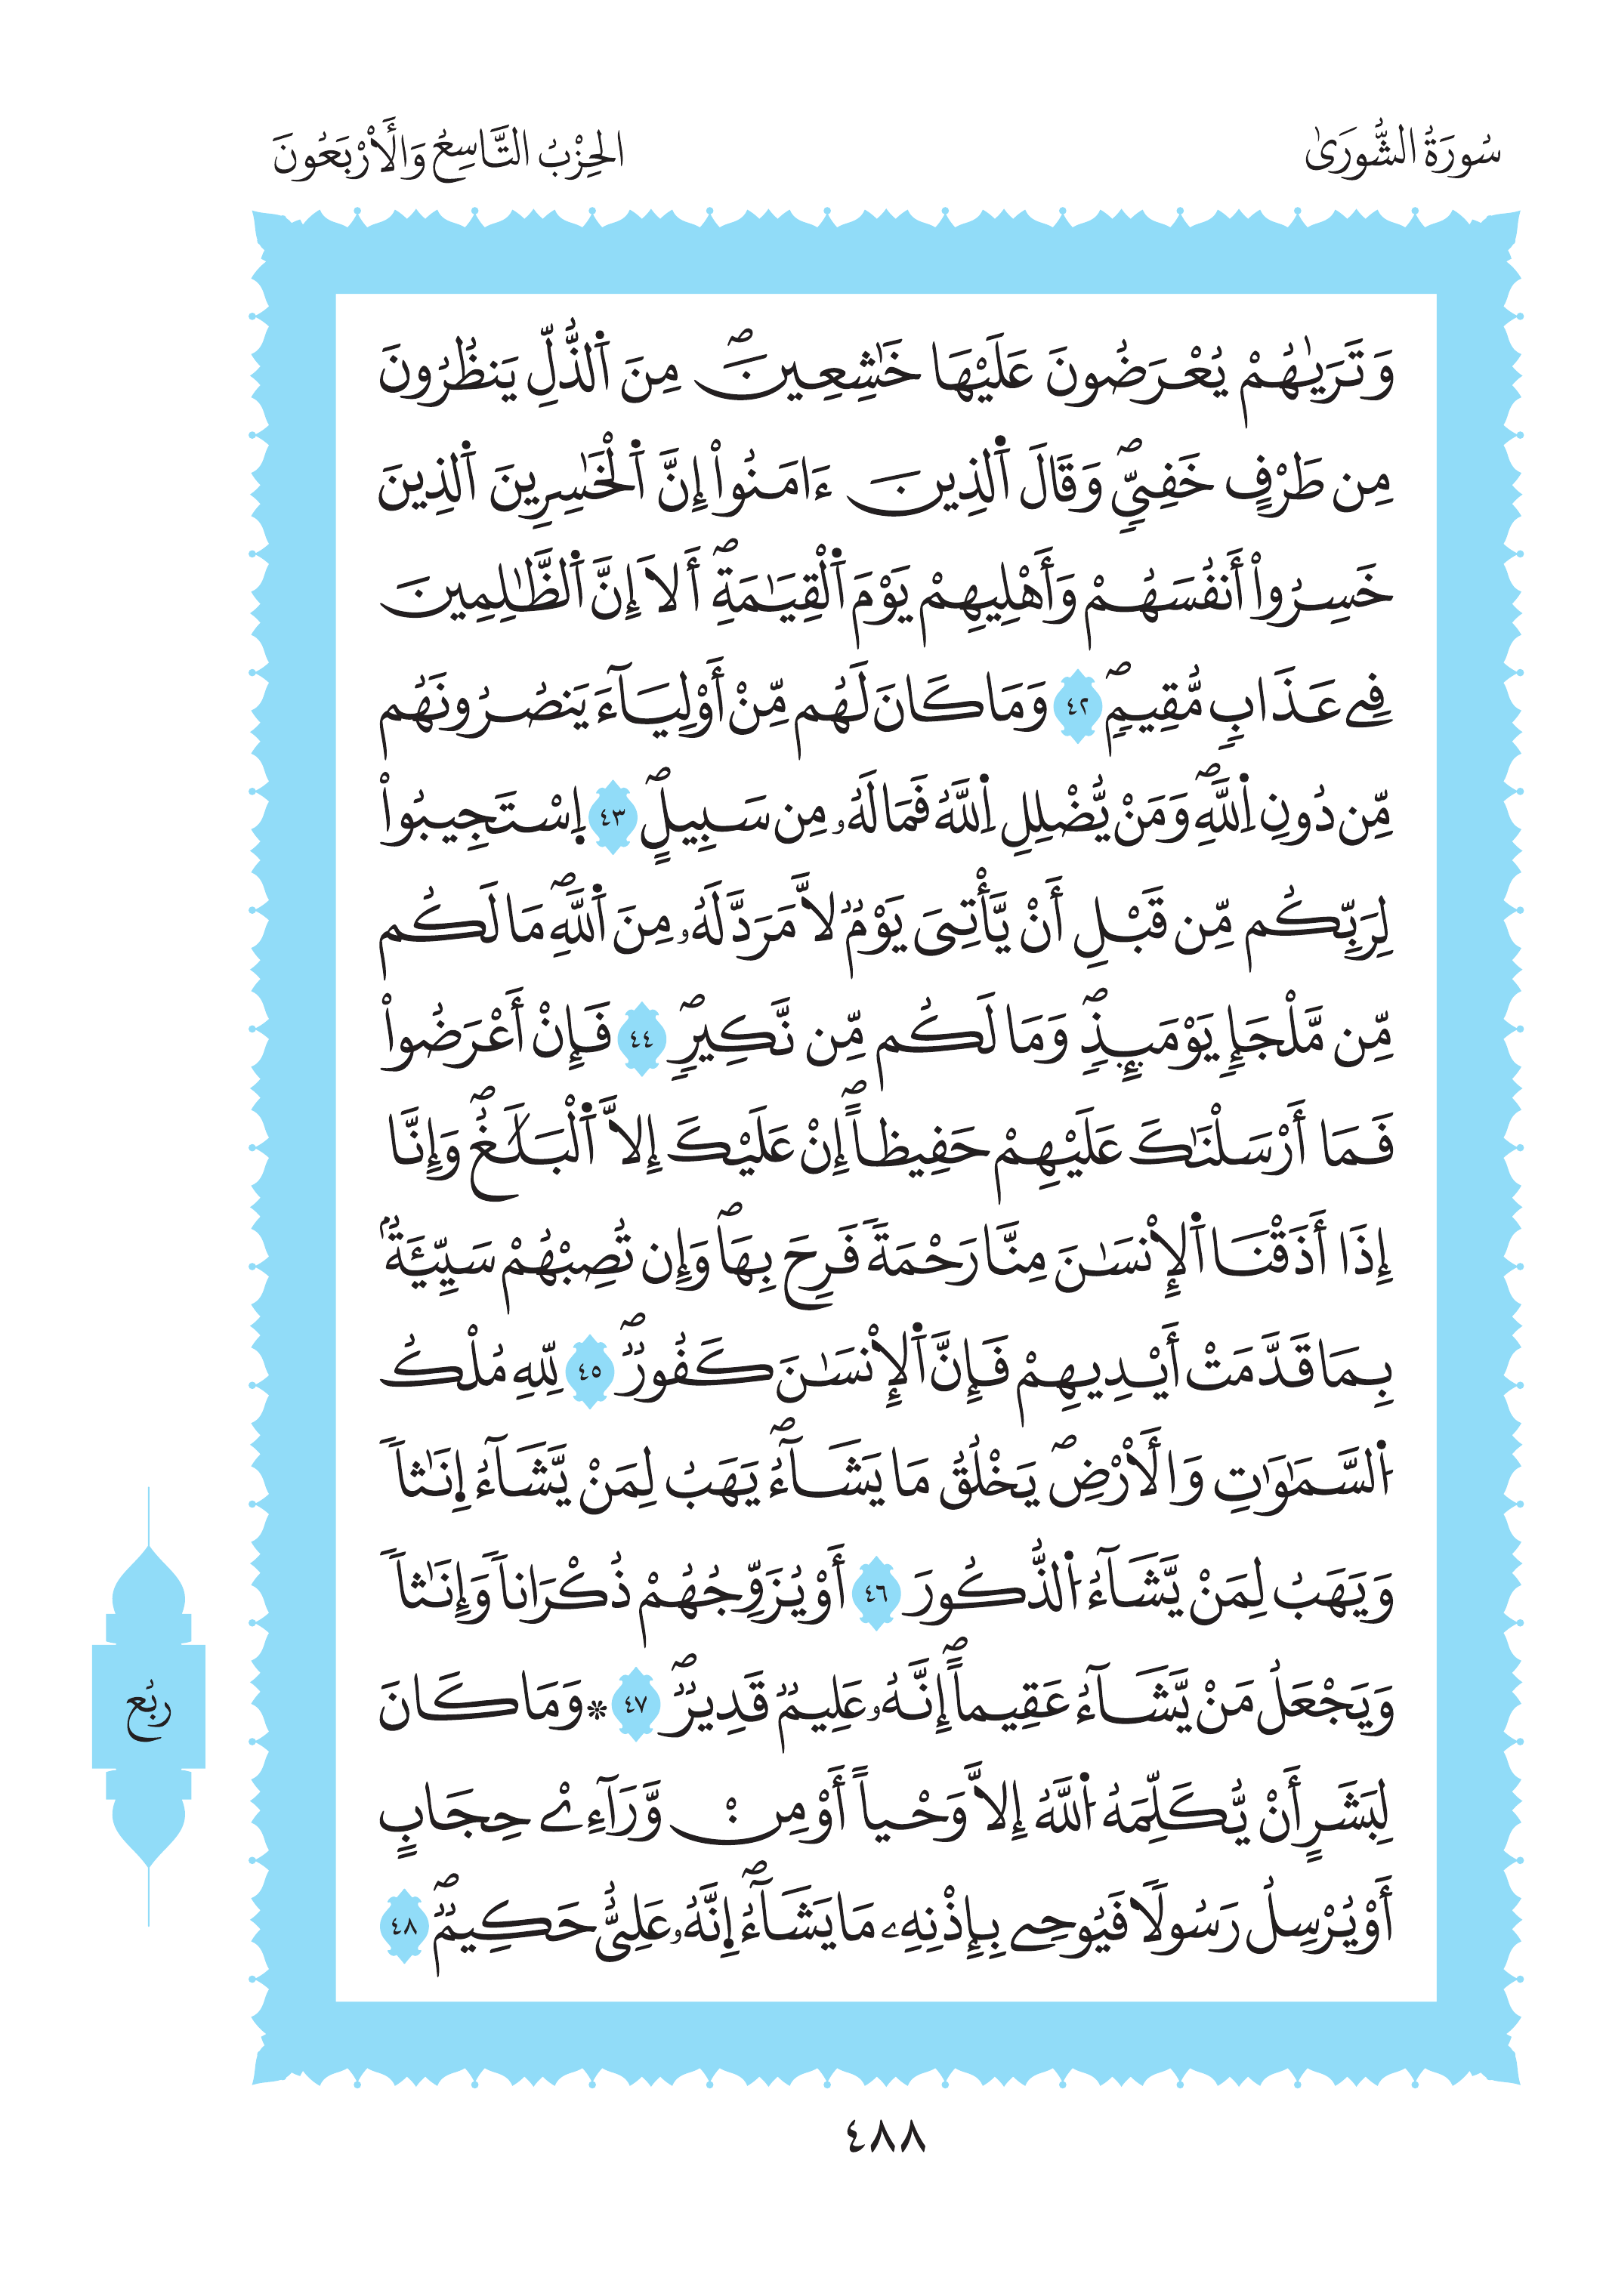 سُورَةُ الشُّورَىٰ
الحِزْبُ التَّاسِعُ وَالَأرْبَعُونَ
وَتَرَيٰهُمْ يُعْرَضُونَ عَلَيْهَا خَٰشِعِينَۖ مِنَ اَ۬لذُّلِّ يَنظُرُونَ
مِن طَرْفٍ خَفِيّٖۖ وَقَالَ اَ۬لذِينَ ءَامَنُوٓاْ إِنَّ اَ۬لْخَٰسِرِينَ اَ۬لذِينَ
خَسِرُوٓاْ أَنفُسَهُمْ وَأَهْلِيهِمْ يَوْمَ اَ۬لْقِيَٰمَةِۖ أَلَآ إِنَّ اَ۬لظَّٰلِمِينَ
فِے عَذَابٖ مُّقِيمٖۖ ٤٢ وَمَا كَانَ لَهُم مِّنْ أَوْلِيَآءَ يَنصُرُونَهُم
مِّن دُونِ اِ۬للَّهِۖ وَمَنْ يُّضْلِلِ اِ۬للَّهُ فَمَا لَهُۥ مِن سَبِيلٍۖ ٤٣ اِ۪سْتَجِيبُواْ
لِرَبِّكُم مِّن قَبْلِ أَنْ يَّأْتِيَ يَوْمٞ لَّا مَرَدَّ لَهُۥ مِنَ اَ۬للَّهِۖ مَا لَكُم
مِّن مَّلْجَإٖ يَوْمَئِذٖۖ وَمَا لَكُم مِّن نَّكِيرٖۖ ٤٤ فَإِنْ أَعْرَضُواْ
فَمَا أَرْسَلْنَٰكَ عَلَيْهِمْ حَفِيظاًۖ إِنْ عَلَيْكَ إِلَّا اَ۬لْبَلَٰغُۖ وَإِنَّا
إِذَا أَذَقْنَا اَ۬لْإِنسَٰنَ مِنَّا رَحْمَةٗ فَرِحَ بِهَاۖ وَإِن تُصِبْهُمْ سَيِّئَةُۢ
بِمَا قَدَّمَتْ أَيْدِيهِمْ فَإِنَّ اَ۬لْإِنسَٰنَ كَفُورٞۖ ٤٥ لِلهِ مُلْكُ
اُ۬لسَّمَٰوَٰتِ وَالَارْضِۖ يَخْلُقُ مَا يَشَآءُۖ يَهَبُ لِمَنْ يَّشَآءُ اِ۪نَٰثاٗ
وَيَهَبُ لِمَنْ يَّشَآءُ اُ۬لذُّكُورَ ٤٦ أَوْ يُزَوِّجُهُمْ ذُكْرَاناٗ وَإِنَٰثاٗ
وَيَجْعَلُ مَنْ يَّشَآءُ عَقِيماًۖ إِنَّهُۥ عَلِيمٞ قَدِيرٞۖ ٤٧ ۞ وَمَا كَانَ
لِبَشَرٍ أَنْ يُّكَلِّمَهُ اُ۬للَّهُ إِلَّا وَحْياً أَوْ مِنْ وَّرَآءِےْ حِجَابٍ
أَوْ يُرْسِلُ رَسُولٗا فَيُوحِے بِإِذْنِهِۦ مَا يَشَآءُۖ اِ۪نَّهُۥ عَلِيٌّ حَكِيمٞۖ ٤٨
ربُع
٤٨٨